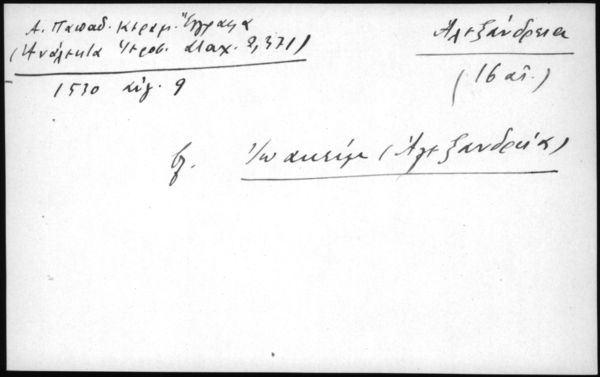 Α. Παπαδ. Κεραμ. Ἔγγραφα
(Ἀνάλεκτα Ἱεροσ. Σταχ. 2, 371)
1530 αὐγ. 9
Ἀλεξάνδρεια
(16 αἰ.)
βλ. Ἰωακείμ (Ἀλεξανδρείας)